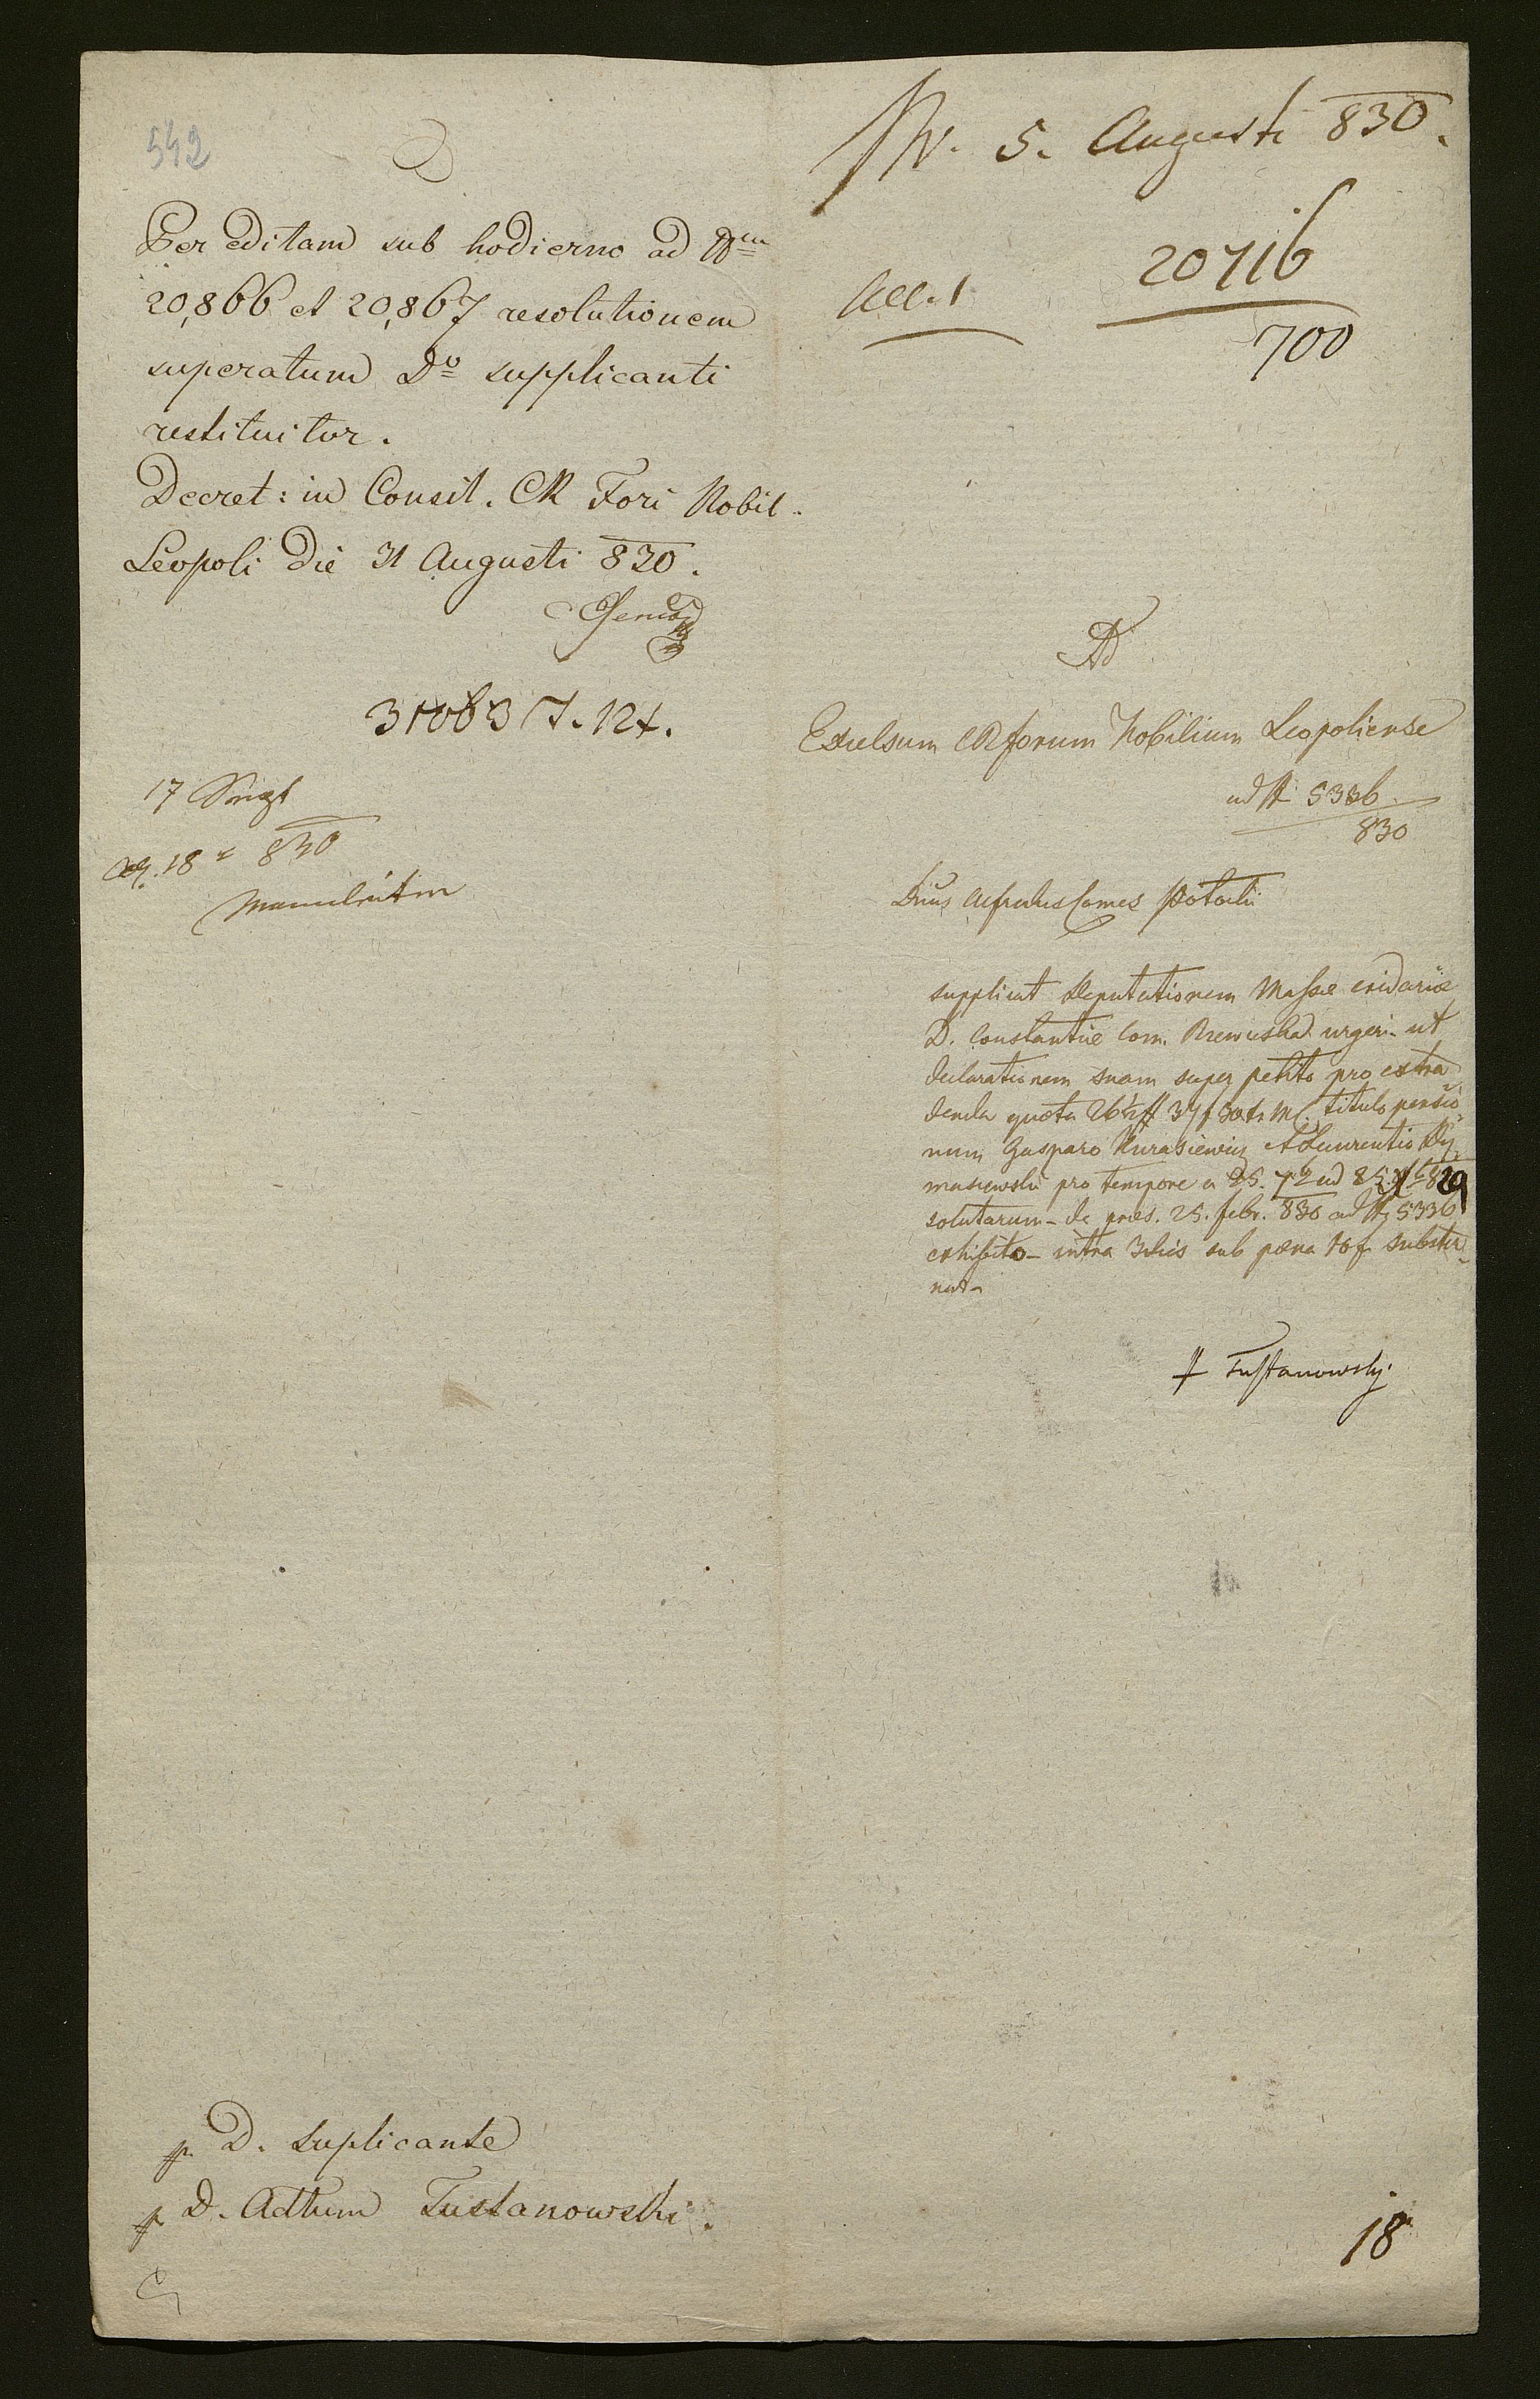 542
Per editam sub hodierno ad Nrm
20,866 et 20,867 resolutionem
superatum Do supplicanti
restituitur.
Decret: in Consil. CR Fori Nobil.
Leopoli die 31 Augusti 830.
31063
17
18 830
p. D. Suplicante
p D. Adtum Tustanowski.
Pr. 5. Augusti 830.
20716
700
All. 1
Ad
Excelsum CR forum Nobilium Leopoliense
ad N 5336
830
Dnus Alfredus Comes Potocki
supplicat Deputationem Massae cridariae
D. Constantiae Com. Rzewuska urgeri ut
declarationem suam super petito pro extra
denda quota 37 f 30 xr MC. titulo pensio
num Gasparo Kurasiewicz et Laurentio Dy
maszewski pro tempore a 25. ad 829
solutarum - de praes. 25. febr. 830 ad N 5336
exhibito - intra 3 dies sub poena 10 f. subster
nat -
Tustanowsky.
18